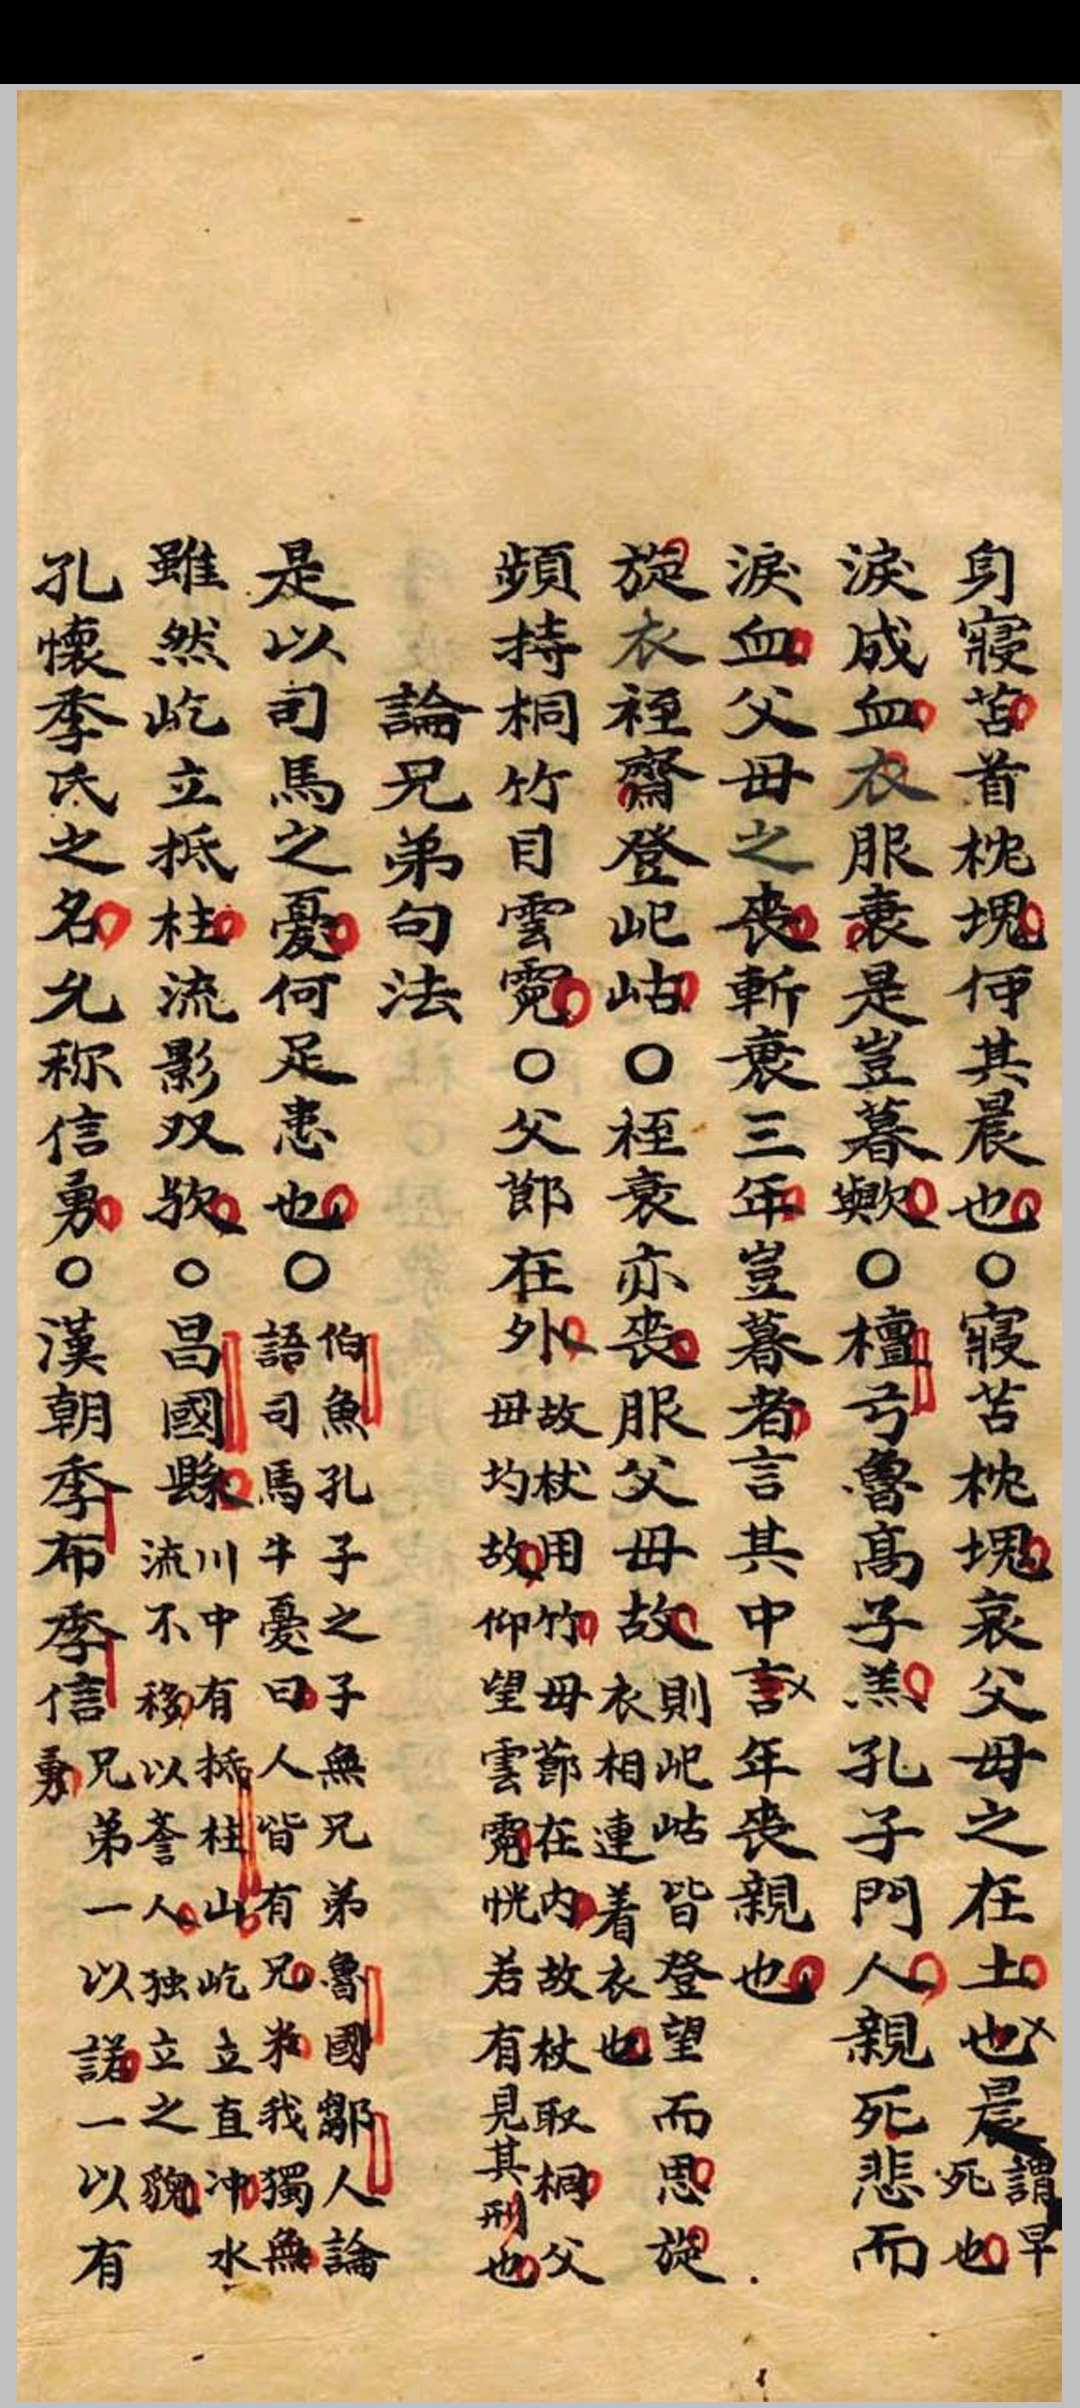 身寢苫首枕塊何其晨也○寢苫枕塊哀父母之在土也晨謂早死也
淚成血衣服衰是豈暮歟○檀弓魯高子羔孔子門人親死悲而
淚血父母之喪斬衰三年豈暮者言其中言年喪親也
旋衣絰齋登屺岵○絰衰亦喪服父母故則屺岵皆登望而思旋衣相連着衣也
頻持桐竹目雲霓○父節在外故杖用竹母節在内故杖取桐父母均故仰望雲霓恍若有見其刑也
論兄弟句法
是以司馬之憂何足患也○伯魚孔子之子無兄弟魯國鄒人論語司馬牛憂曰人皆有兄弟我獨無
雖然屹立抵柱流影双欤○昌國縣川中有抵柱山屹立直冲水流不移以喻人独立之貌
孔懷季氏之名允称信勇○漢朝季布季信兄弟一以諾一以有勇